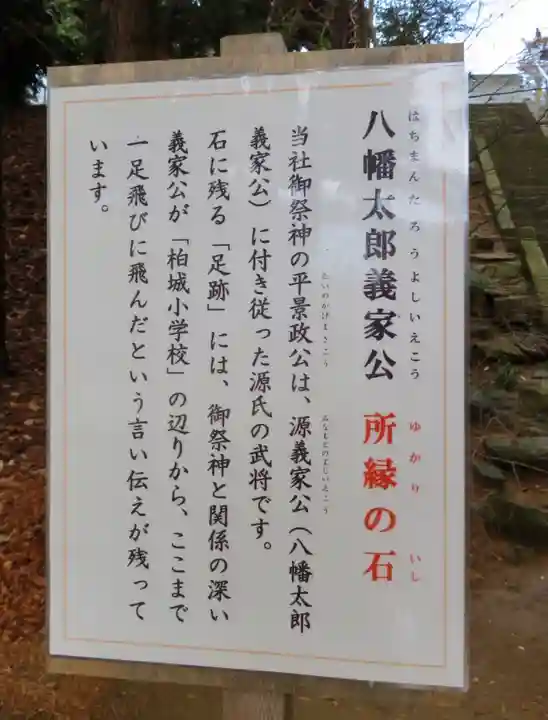 はちまんたろうよしいえこう ゆかり いし
八幡太郎義家公 所縁の石
たいらのかげまさこう みなもとのよしいえこう
当社御祭神の平景政公は、源義家公（八幡太郎
義家公）に付き従った源氏の武将です。
石に残る「足跡」には、御祭神と関係の深い
義家公が「柏城小学校」の辺りから、ここまで
一足飛びに飛んだという言い伝えが残って
います。